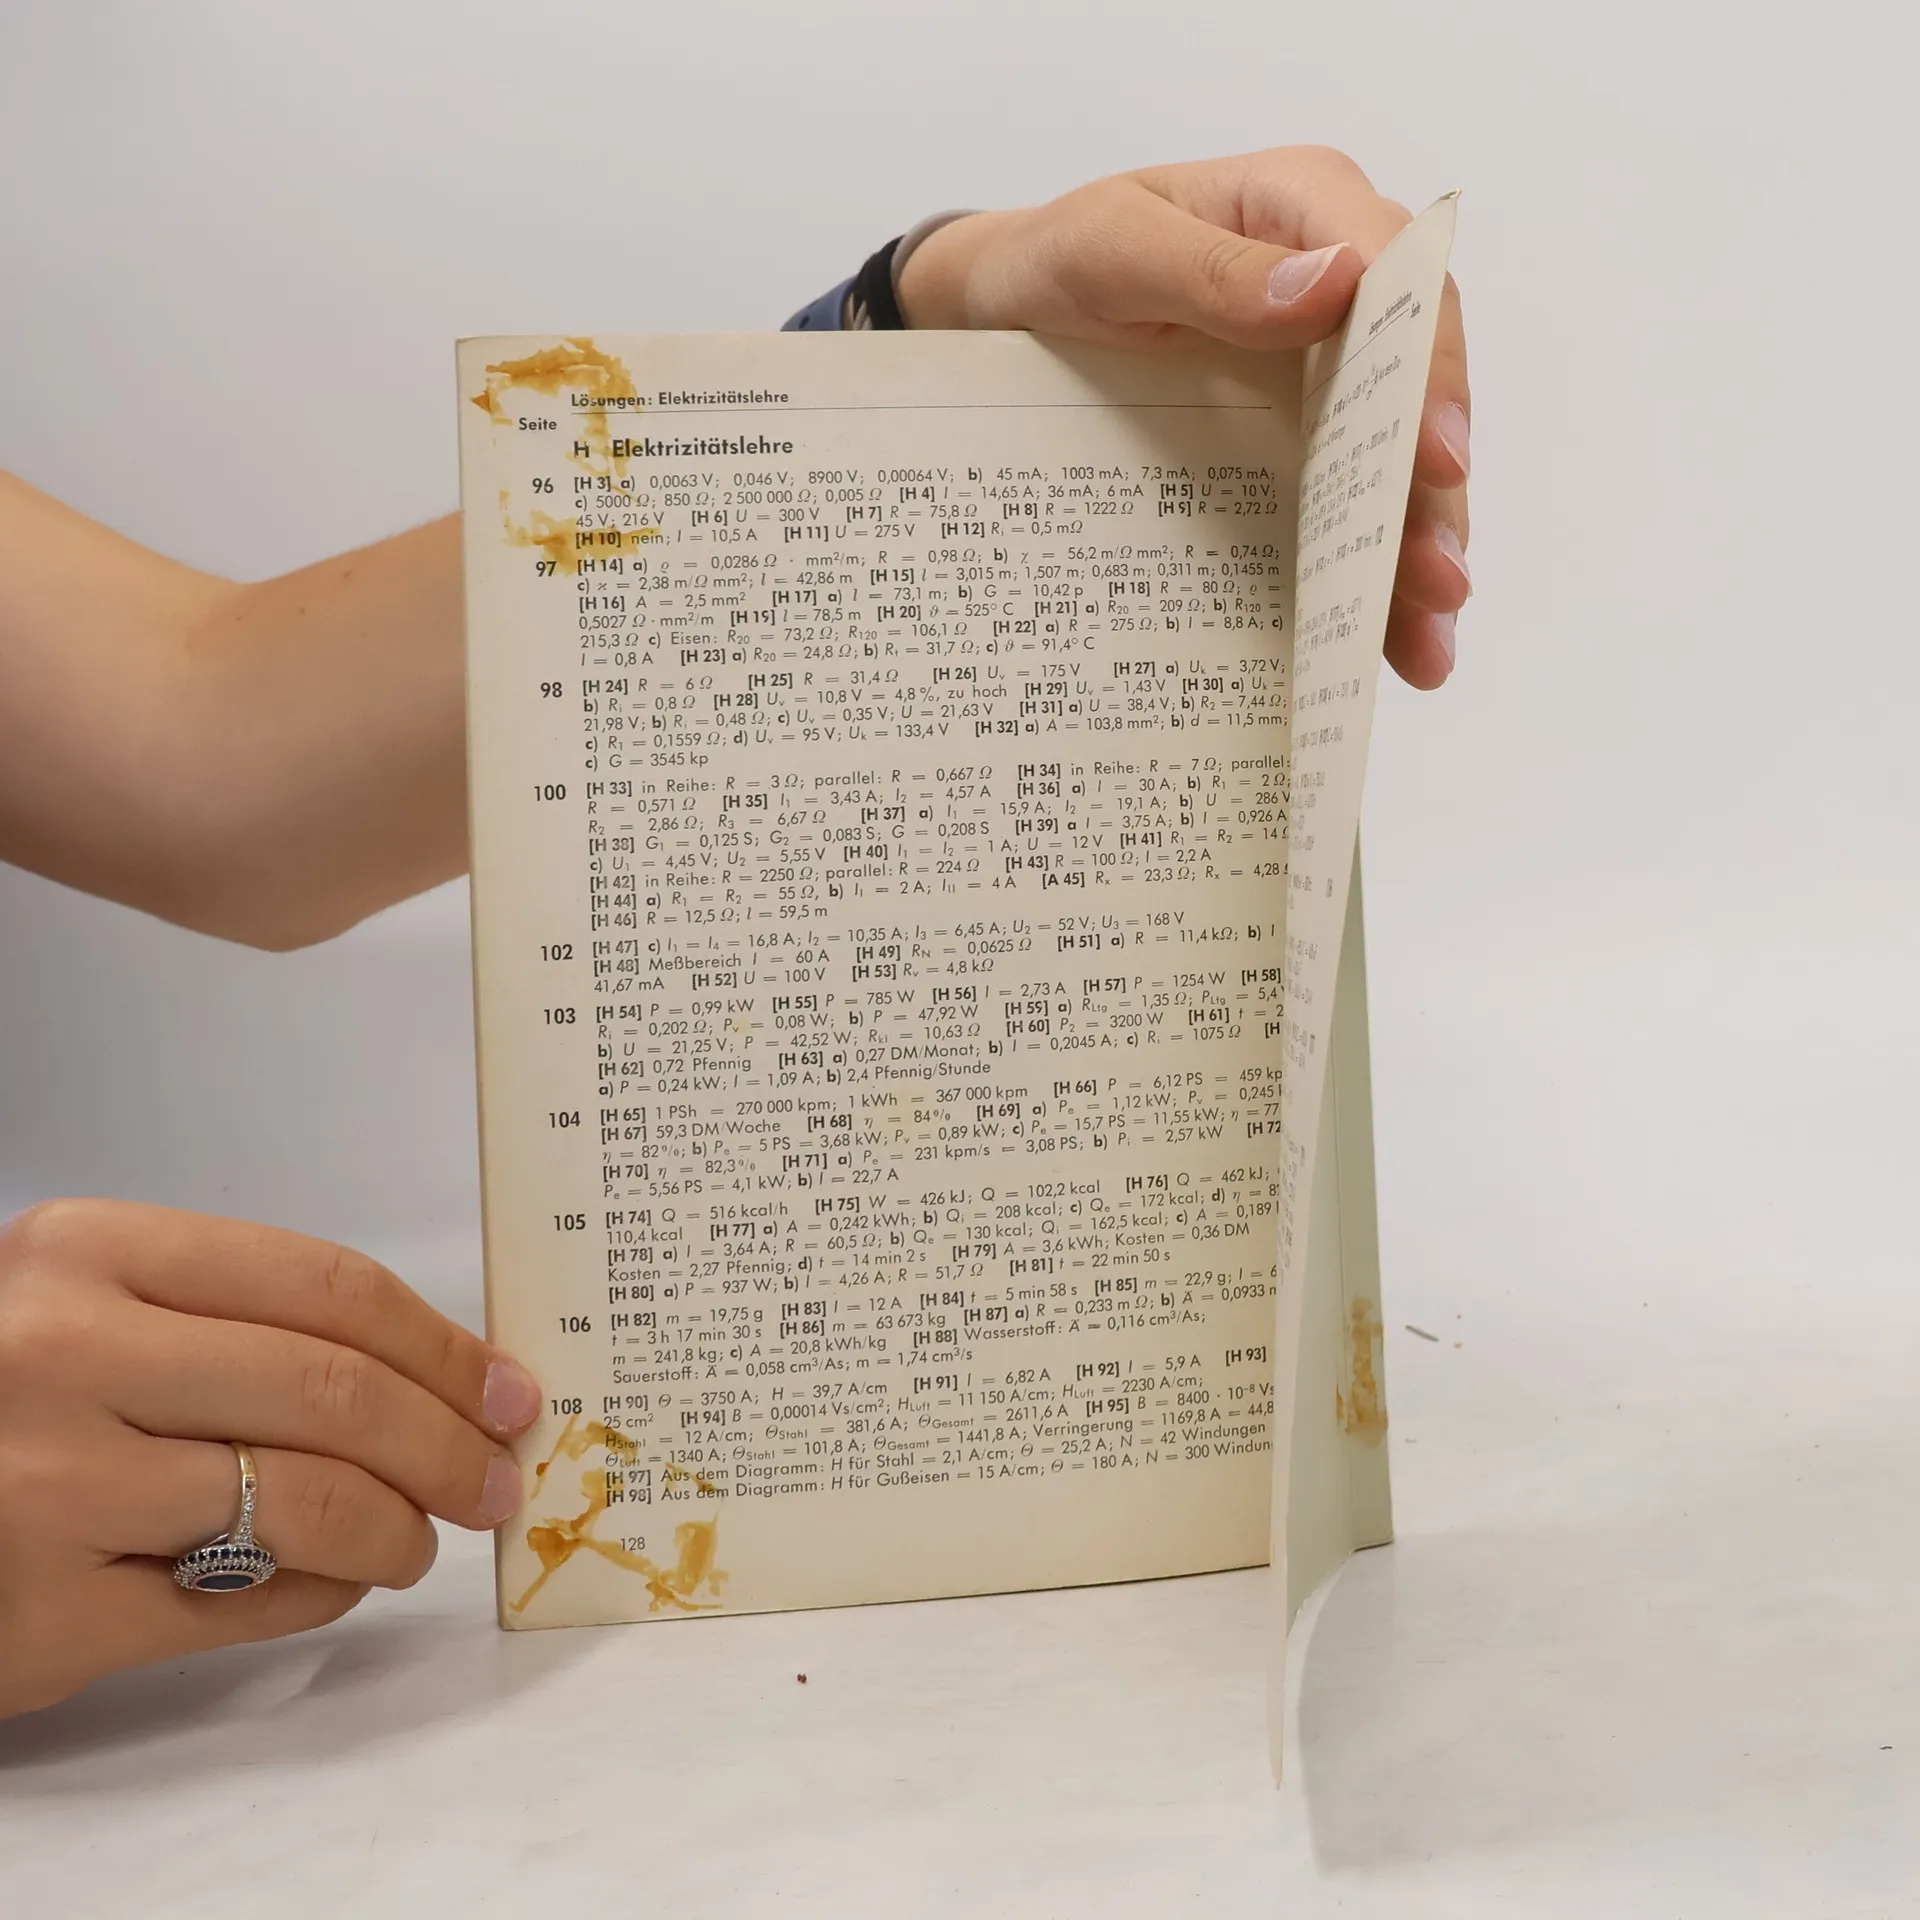 Lösungen: Elektrizitätslehre
Seite
H Elektrizitätslehre
96 [H 3] a) 0,0063 V; 0,046 V; 8900 V; 0,00064 V; b) 45 mA; 1003 mA; 7,3 mA; 0,075 mA;
c) 5000 Ω; 850 Ω; 2 500 000 Ω; 0,005 Ω [H 4] I = 14,65 A; 36 mA; 6 mA [H 5] U = 10 V;
45 V; 216 V [H 6] U = 300 V [H 7] R = 75,8 Ω [H 8] R = 1222 Ω [H 9] R = 2,72 Ω
[H 10] nein; I = 10,5 A [H 11] U = 275 V [H 12] Rᵢ = 0,5 mΩ
97 [H 14] a) ϱ = 0,0286 Ω · mm²/m; R = 0,98 Ω; b) χ = 56,2 m/Ω mm²; R = 0,74 Ω;
c) ϰ = 2,38 m/Ω mm²; l = 42,86 m [H 15] l = 3,015 m; 1,507 m; 0,683 m; 0,311 m; 0,1455 m
[H 16] A = 2,5 mm² [H 17] a) l = 73,1 m; b) G = 10,42 p [H 18] R = 80 Ω; ϱ =
0,5027 Ω · mm²/m [H 19] l = 78,5 m [H 20] ϑ = 525° C [H 21] a) R₂₀ = 209 Ω; b) R₁₂₀ =
215,3 Ω c) Eisen: R₂₀ = 73,2 Ω; R₁₂₀ = 106,1 Ω [H 22] a) R = 275 Ω; b) I = 8,8 A; c)
I = 0,8 A [H 23] a) R₂₀ = 24,8 Ω; b) Rₜ = 31,7 Ω; c) ϑ = 91,4° C
98 [H 24] R = 6 Ω [H 25] R = 31,4 Ω [H 26] Uᵥ = 175 V [H 27] a) Uₖ = 3,72 V;
b) Rᵢ = 0,8 Ω [H 28] Uᵥ = 10,8 V = 4,8 %, zu hoch [H 29] Uᵥ = 1,43 V [H 30] a) Uₖ =
21,98 V; b) Rᵢ = 0,48 Ω; c) Uᵥ = 0,35 V; U = 21,63 V [H 31] a) U = 38,4 V; b) R₂ = 7,44 Ω;
c) R₁ = 0,1559 Ω; d) Uᵥ = 95 V; Uₖ = 133,4 V [H 32] a) A = 103,8 mm²; b) d = 11,5 mm;
c) G = 3545 kp
100 [H 33] in Reihe: R = 3 Ω; parallel: R = 0,667 Ω [H 34] in Reihe: R = 7 Ω; parallel:
R = 0,571 Ω [H 35] I₁ = 3,43 A; I₂ = 4,57 A [H 36] a) I = 30 A; b) R₁ = 2 Ω;
R₂ = 2,86 Ω; R₃ = 6,67 Ω [H 37] a) I₁ = 15,9 A; I₂ = 19,1 A; b) U = 286 V
[H 38] G₁ = 0,125 S; G₂ = 0,083 S; G = 0,208 S [H 39] a I = 3,75 A; b) I = 0,926 A
c) U₁ = 4,45 V; U₂ = 5,55 V [H 40] I₁ = I₂ = 1 A; U = 12 V [H 41] R₁ = R₂ = 14
[H 42] in Reihe: R = 2250 Ω; parallel: R = 224 Ω [H 43] R = 100 Ω; I = 2,2 A
[H 44] a) R₁ = R₂ = 55 Ω, b) Iᵢ = 2 A; Iᵢᵢ = 4 A [A 45] Rₓ = 23,3 Ω; Rₓ = 4,28
[H 46] R = 12,5 Ω; l = 59,5 m
102 [H 47] c) I₁ = I₄ = 16,8 A; I₂ = 10,35 A; I₃ = 6,45 A; U₂ = 52 V; U₃ = 168 V
[H 48] Meßbereich I = 60 A [H 49] R_N = 0,0625 Ω [H 51] a) R = 11,4 kΩ; b) I
41,67 mA [H 52] U = 100 V [H 53] Rᵥ = 4,8 kΩ
103 [H 54] P = 0,99 kW [H 55] P = 785 W [H 56] I = 2,73 A [H 57] P = 1254 W [H 58]
Rᵢ = 0,202 Ω; Pᵥ = 0,08 W; b) P = 47,92 W [H 59] a) R_Ltg = 1,35 Ω; P_Ltg = 5,4
b) U = 21,25 V; P = 42,52 W; R_kl = 10,63 Ω [H 60] P₂ = 3200 W [H 61] t = 2
[H 62] 0,72 Pfennig [H 63] a) 0,27 DM/Monat; b) I = 0,2045 A; c) Rᵢ = 1075 Ω [H
a) P = 0,24 kW; I = 1,09 A; b) 2,4 Pfennig/Stunde
104 [H 65] 1 PSh = 270 000 kpm; 1 kWh = 367 000 kpm [H 66] P = 6,12 PS = 459 kp
[H 67] 59,3 DM/Woche [H 68] η = 84% [H 69] a) Pₑ = 1,12 kW; Pᵥ = 0,245
η = 82%; b) Pₑ = 5 PS = 3,68 kW; Pᵥ = 0,89 kW; c) Pₑ = 15,7 PS = 11,55 kW; η = 77
[H 70] η = 82,3% [H 71] a) Pₑ = 231 kpm/s = 3,08 PS; b) Pᵢ = 2,57 kW [H 72
Pₑ = 5,56 PS = 4,1 kW; b) I = 22,7 A
105 [H 74] Q = 516 kcal/h [H 75] W = 426 kJ; Q = 102,2 kcal [H 76] Q = 462 kJ;
110,4 kcal [H 77] a) A = 0,242 kWh; b) Qᵢ = 208 kcal; c) Qₑ = 172 kcal; d) η = 8
[H 78] a) I = 3,64 A; R = 60,5 Ω; b) Qₑ = 130 kcal; Qᵢ = 162,5 kcal; c) A = 0,189
Kosten = 2,27 Pfennig; d) t = 14 min 2 s [H 79] A = 3,6 kWh; Kosten = 0,36 DM
[H 80] a) P = 937 W; b) I = 4,26 A; R = 51,7 Ω [H 81] t = 22 min 50 s
106 [H 82] m = 19,75 g [H 83] I = 12 A [H 84] t = 5 min 58 s [H 85] m = 22,9 g; I = 6
t = 3 h 17 min 30 s [H 86] m = 63 673 kg [H 87] a) R = 0,233 m Ω; b) Ä = 0,0933
m = 241,8 kg; c) A = 20,8 kWh/kg [H 88] Wasserstoff: Ä = 0,116 cm³/As;
Sauerstoff: Ä = 0,058 cm³/As; m = 1,74 cm³/s
108 [H 90] Θ = 3750 A; H = 39,7 A/cm [H 91] I = 6,82 A [H 92] I = 5,9 A [H 93]
25 cm² [H 94] B = 0,00014 Vs/cm²; H_Luft = 11 150 A/cm; H_Luft = 2230 A/cm;
H_Stahl = 12 A/cm; Θ_Stahl = 381,6 A; Θ_Gesamt = 2611,6 A [H 95] B = 8400 · 10⁻⁸ Vs
Θ_Luft = 1340 A; Θ_Stahl = 101,8 A; Θ_Gesamt = 1441,8 A; Verringerung = 1169,8 A = 44,8
[H 97] Aus dem Diagramm: H für Stahl = 2,1 A/cm; Θ = 25,2 A; N = 42 Windungen
[H 98] Aus dem Diagramm: H für Gußeisen = 15 A/cm; Θ = 180 A; N = 300
128